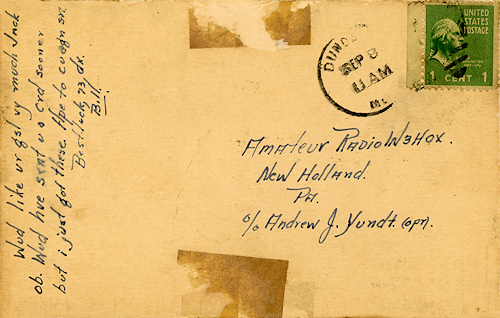 Wud like ur qsl vy much Jack
ob. Wud hve sent us crd sooner
but i just got these. Hpe to cuagn sn.
Best luck, 73, dx.
Bill.
SEP 8
11 AM
UNITED STATES POSTAGE
1 CENT 1
Amateur Radio W3HOX.
New Holland.
Pa.
c/o Andrew J. Yundt. (opr).